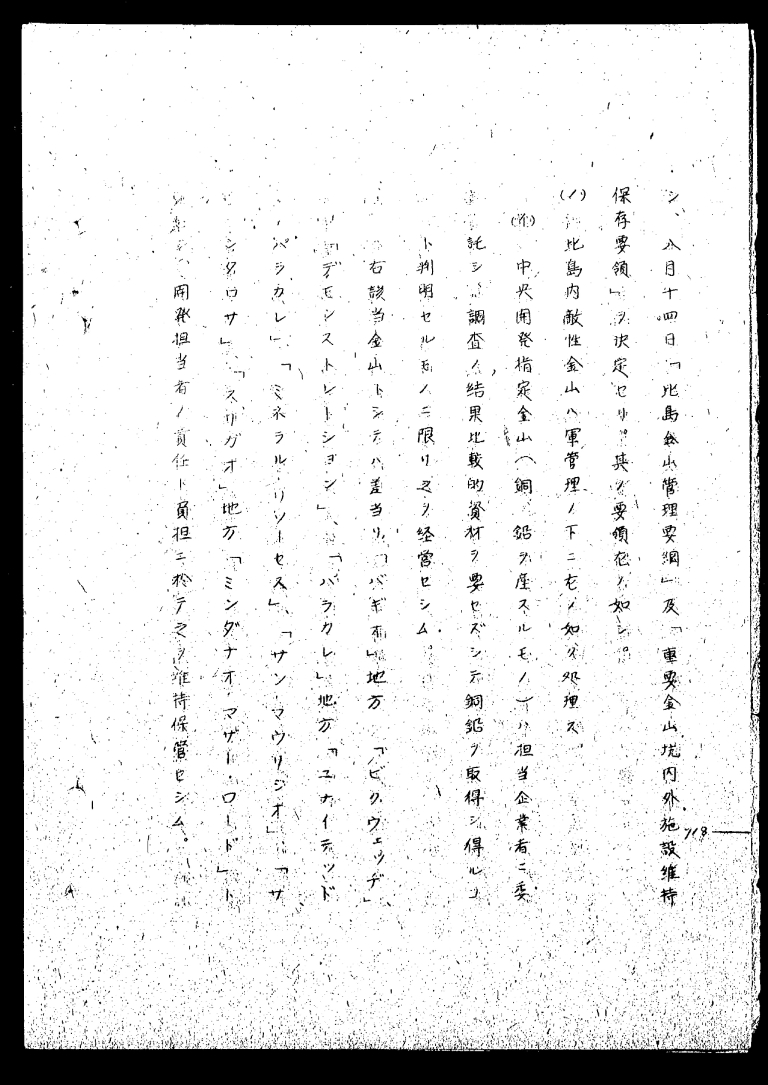 シ、八月十四日「比島金山管理要綱」及「重要金山坑内外施設維持
保存要領」ヲ決定セリ。其ノ要領左ノ如シ。
(ノ) 比島内敵性金山ハ軍管理ノ下ニ左ノ如ク処理ス
中央開発指定金山(銅、鉛ヲ産スルモノ)ハ担当企業者ニ委
託シ、調査ノ結果比較的資材ヲ要セズシテ銅鉛ヲ取得シ得ルコ
ト判明セルモノニ限リ之ヲ経営セシム。
右該当金山トシテハ差当リ「バギオ」地方 「ビクウェッヂ」
「デモンストレーション」、「パラカレ」地方「ユナイテッド
パラカレ」、「ミネラル・リソーセス」、「サン・マウリシオ」、「サ
ンタロサ」「スリガオ」地方「ミンダナオ・マザー・ロード」ト
開発担当者ノ責任ト負担ニ於テ之ヲ維持保管セシム。
718